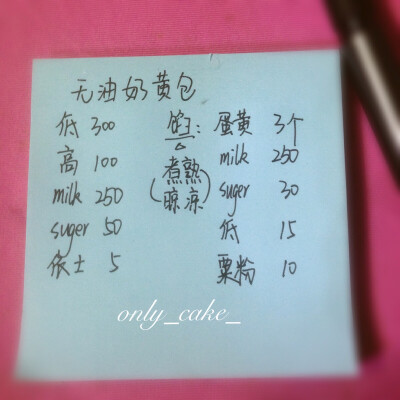 无油奶黄包
低 300
高 100
milk 250
suger 50
依士 5
馅: 蛋黄 3个
煮熟 milk 250
(晾凉) suger 30
低 15
粟粉 10
only_cake_